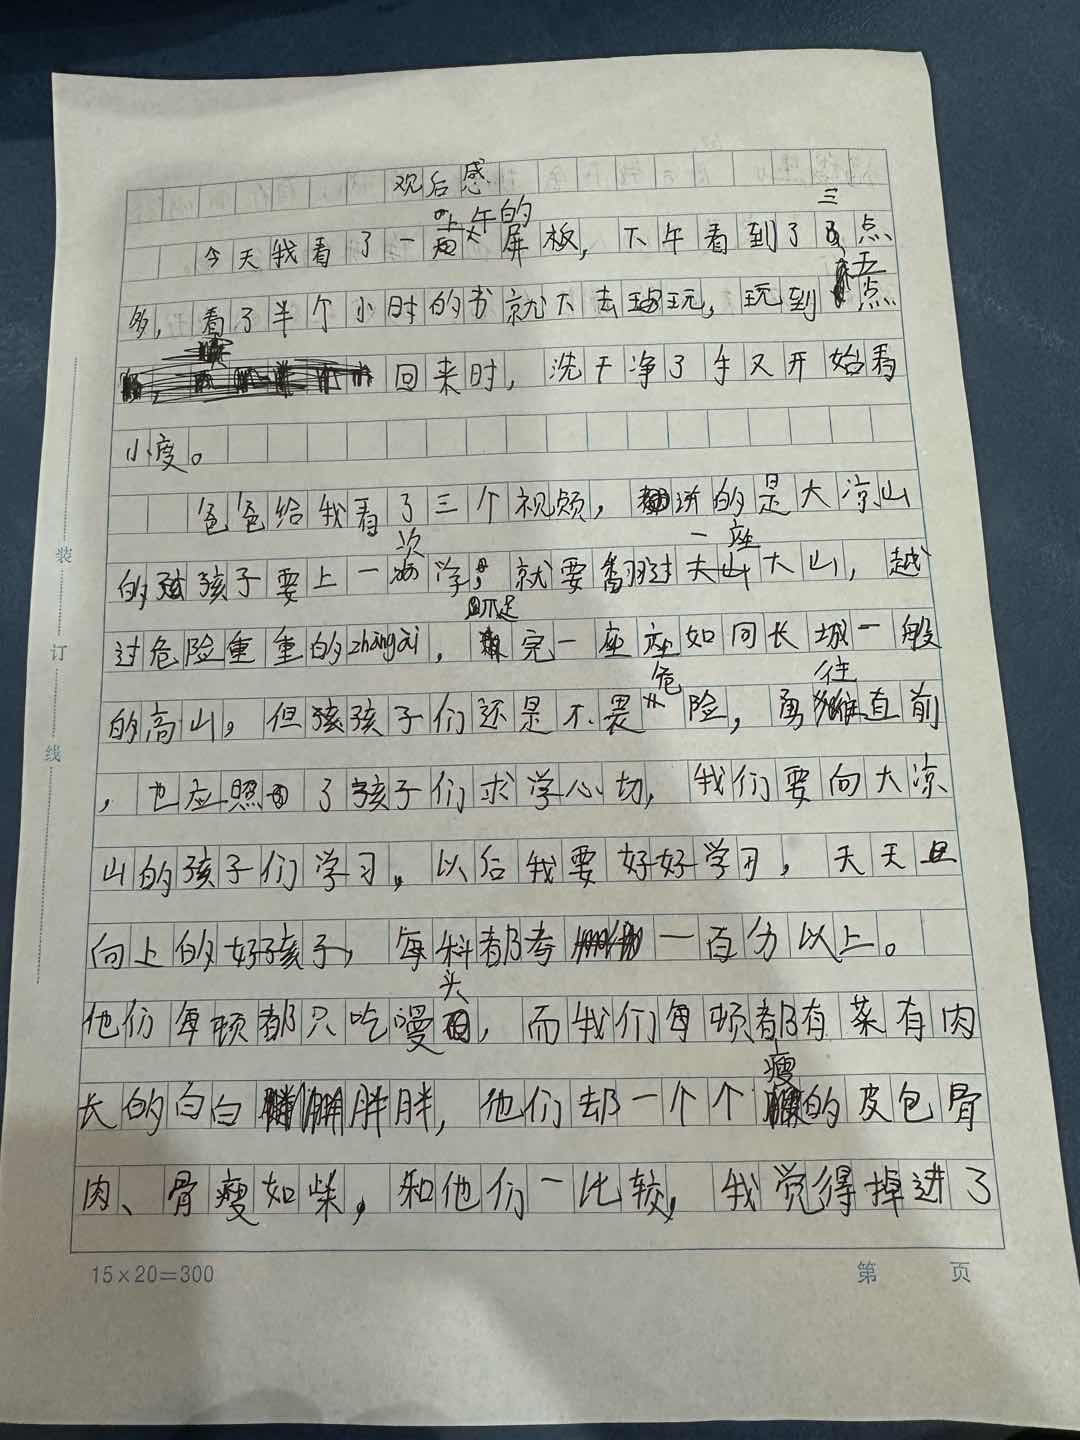 观后感
今天我看了一上午的屏板，下午看到了三点
多，看了半个小时的书就下去玩，玩到五点
回来时，洗干净了手又开始看
小度。
爸爸给我看了三个视频，讲的是大凉山
的孩子要上一次学，就要翻过一座大山，越
过危险重重的zhàng ài，爬完一座座如同长城一般
的高山。但孩子们还是不畏危险，勇往直前
，也应照了孩子们求学心切，我们要向大凉
山的孩子们学习。以后我要好好学习，天天且
向上的好孩子，每科都考一百分以上。
他们每顿都只吃馒头，而我们每顿都有菜有肉
长的白白胖胖，他们却一个个瘦的皮包骨
肉、骨瘦如柴，和他们一比较，我觉得掉进了
15×20=300
第 页
装
订
线